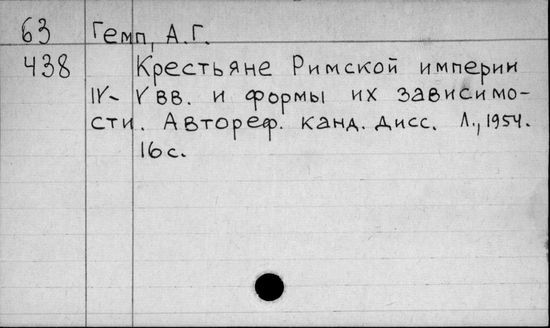 63 Гемп, А.Г.
438 Крестьяне Римской империи
IV- V вв. и формы их зависимо-
сти. Автореф. канд. дисс. Л., 1954.
16 с.